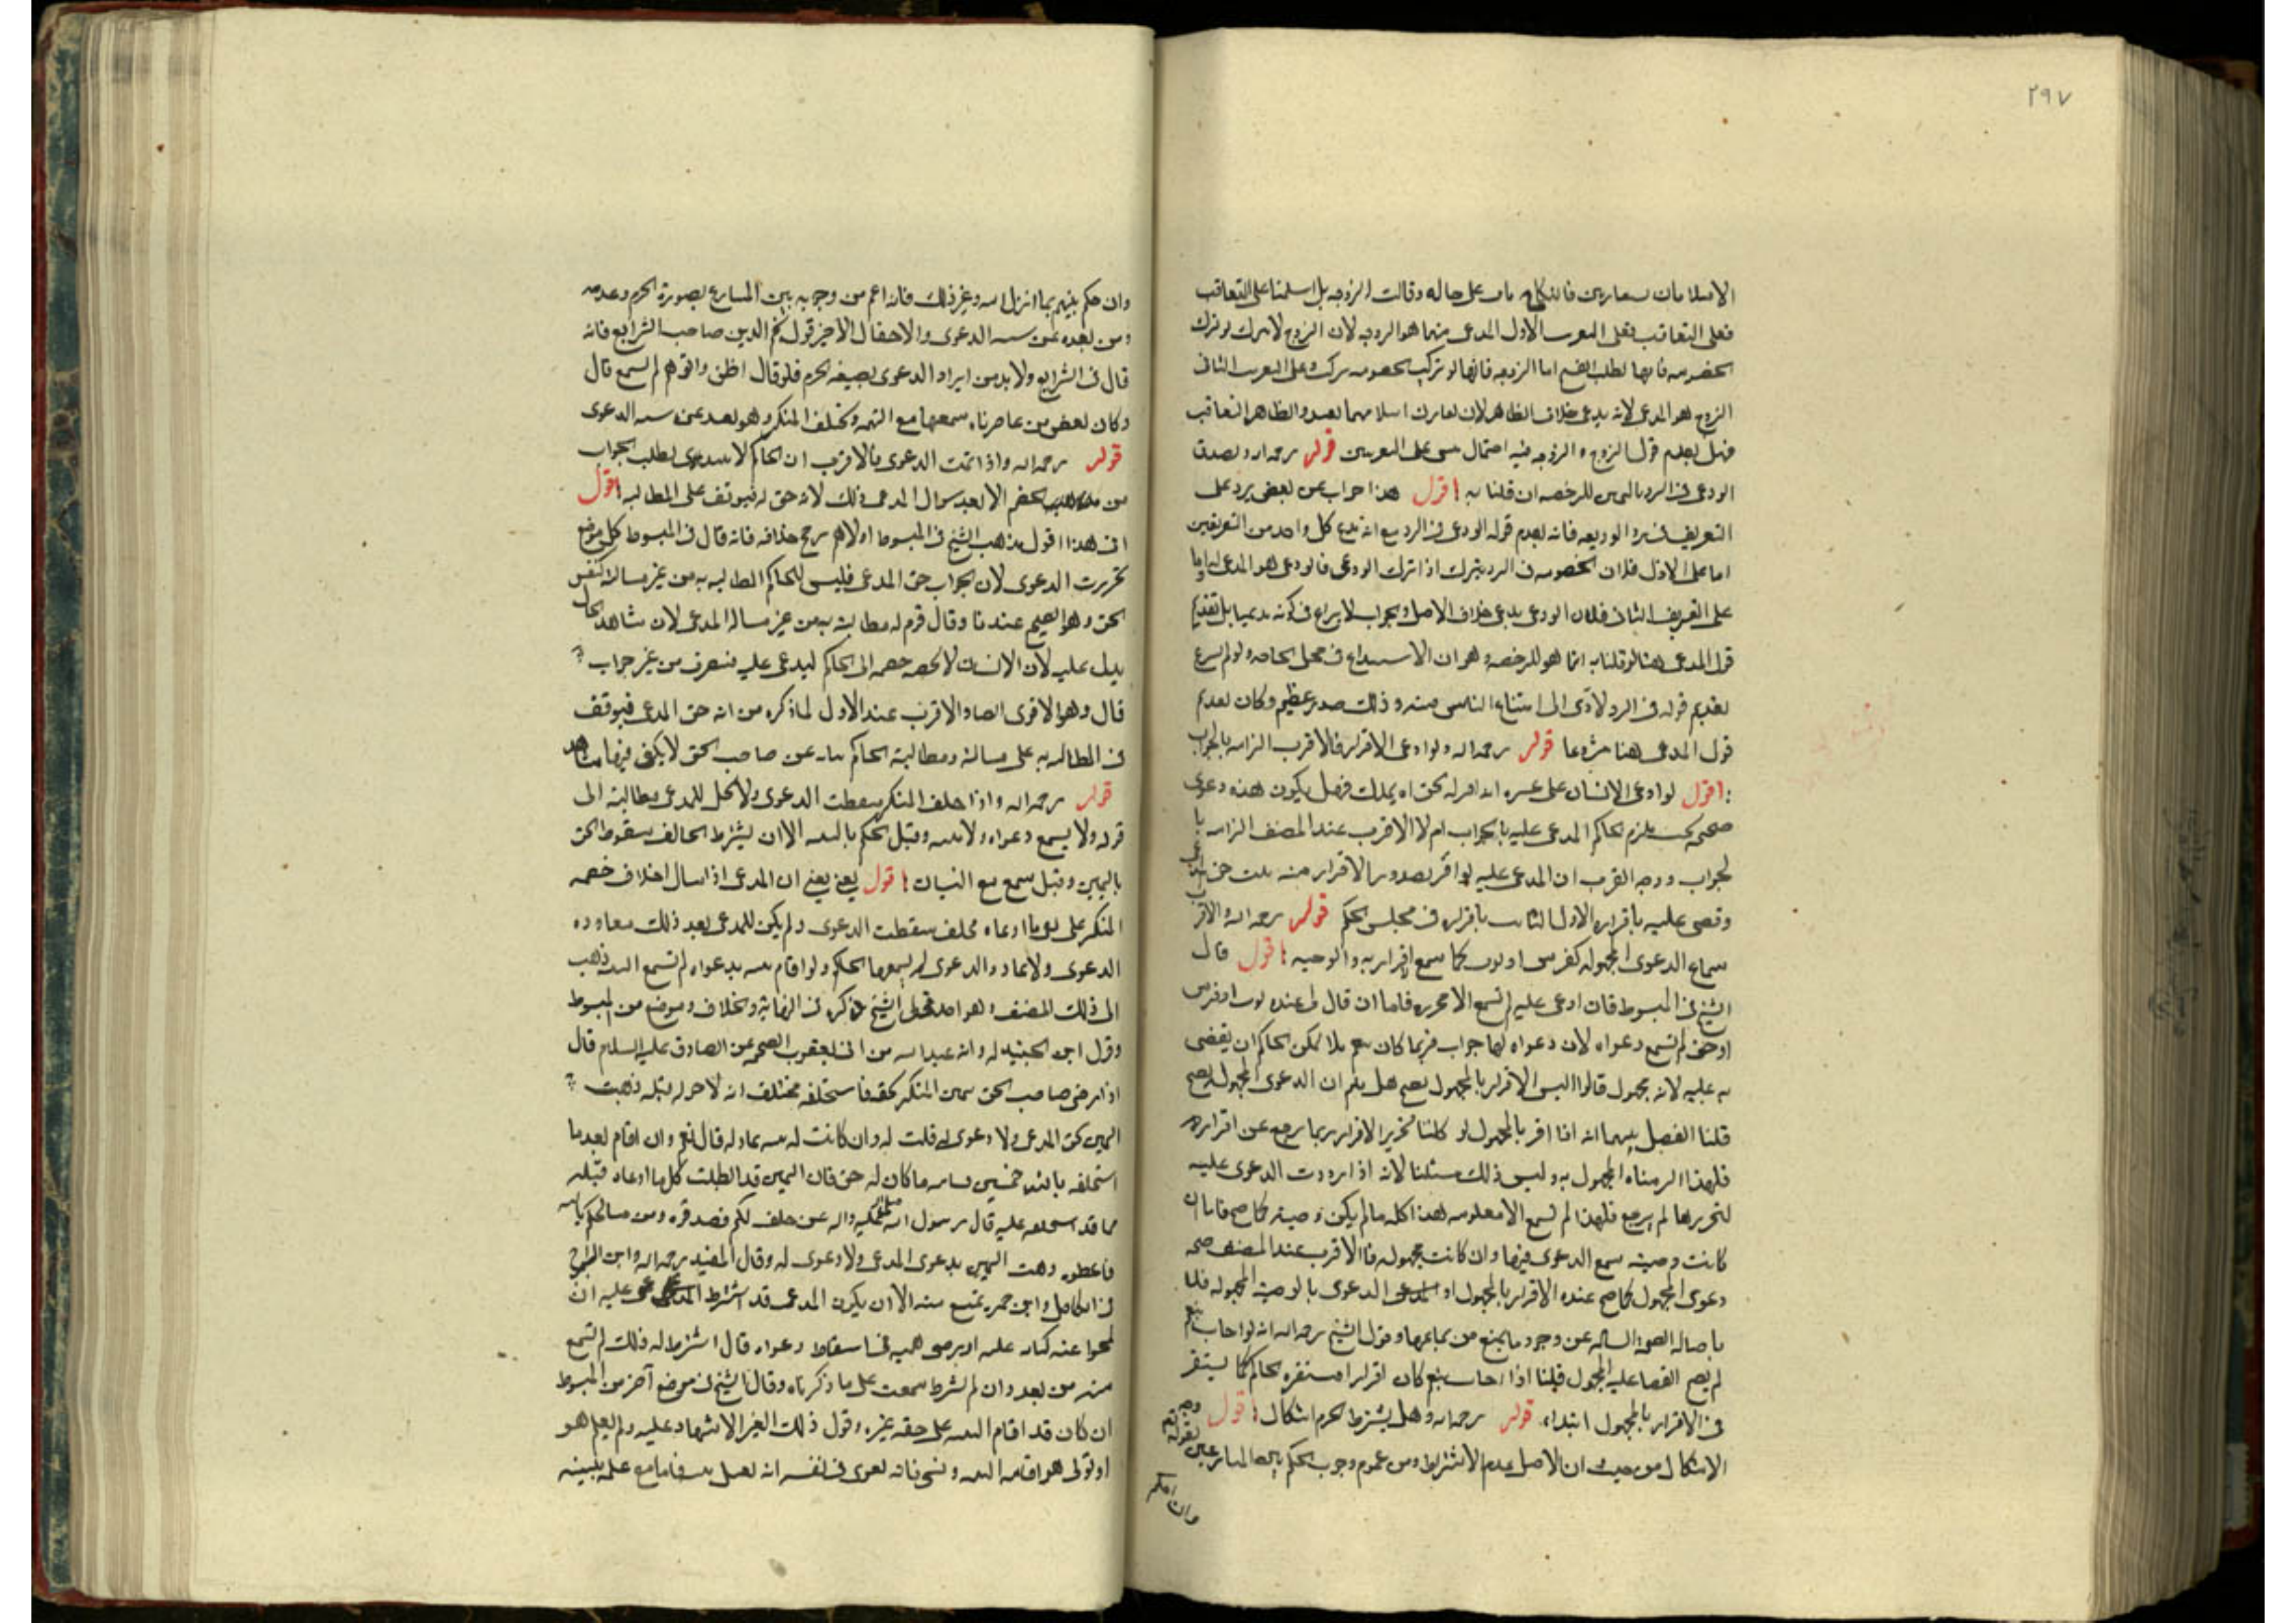 ٢٩٧
فعلى التعاقب فعلى الاول المدعى منهما هو الزوجه لان الزوج لا يترك لو ترك
الزوج هو المدعى لانه يدعى خلاف الظاهر لان اسلامهما بعيد والظاهر التعاقب
فهل يقدم قول الزوج او الزوجه فيه احتمال مبنى على التعريفين قوله رحمه الله ويصدق
الودعى فى الرد باليمين للرخصه ان قلنا به اقول هذا جواب عن نقض يرد على
اما على الاول فلان الخصومه فى الرد يترك اذا ترك الودعى فالودعى هو المدعى
على التعريف الثانى فلان الودعى يدعى خلاف الاصل والجواب لا نزاع فى كونه مدعيا بل تقديم
قول المدعى هنا لو قلنا به انما هو للرخصه وهو ان الاستيداع فى محل الحاجه ولو لم يشرع
تقديم قوله فى الرد لادى الى امتناع الناس منه وذلك ضرر عظيم وكان تقديم
قول المدعى هنا مشروعا قوله رحمه الله ولو ادعى الاقرار فالاقرب الزامه بالجواب
اقول لو ادعى الانسان على غيره انه اقر له بحق او بملك فهل يكون هذه دعوى
صحيحه بحيث يلزم الحاكم المدعى عليه بالجواب ام لا الاقرب عند المصنف الزامه با
لجواب ووجه القرب ان المدعى عليه لو اقر بصدور الاقرار منه ثبت حق
وقضى عليه باقراره الاول الثابت باقراره فى مجلس الحكم قوله رحمه الله والاقرب
سماع الدعوى المجهوله كفرس او ثوب كما يسمع الاقرار به والوصيه اقول قال
الشيخ فى المبسوط فان ادعى عليه لم تسمع الا محرره فاما ان قال لى عنده ثوب او فرس
او حق لم تسمع دعواه لان دعواه لها جواب فربما كان بنعم فلا يمكن الحاكم ان يقضى
به عليه لانه مجهول قالوا اليس الاقرار بالمجهول يصح هلا قلتم ان الدعوى المجهوله تصح
قلنا الفصل بينهما انه اذا اقر بالمجهول لو كلفناه تحرير الاقرار ربما رجع عن اقراره
فلهذا الزمناه المجهول به وليس كذلك مسئلتنا لانه اذا رددت الدعوى عليه
لتحريرها لم يرجع فلهذا لم تسمع الا معلومه هذا كله ما لم يكن وصيه فاما ان
كانت وصيه سمع الدعوى فيها وان كانت مجهوله فالاقرب عند المصنف صحه
دعوى المجهول كما صح عنده الاقرار بالمجهول او الدعوى بالوصيه المجهوله
باصاله الصحه السالمه عن وجود ما يمنع من سماعها وقول الشيخ رحمه الله انه لو اجاب بنعم
لم يصح القضا عليه بالمجهول قلنا اذا اجاب بنعم كان اقرارا يستفسره الحاكم كما يستفسر
فى الاقرار بالمجهول ابتداء قوله رحمه الله وهل يشترط الجزم اشكال اقول وجه
الاشكال من حيث ان الاصل عدم الاشتراط ومن عموم وجوب الحكم بين المتنازعين
وان احكم
وان حكم بينهم بما انزل الله وغير ذلك فانه اعم من وجوبه بين المتنازع بصورة الجزم وعدمه
ومن بعده عن شبه الدعوى والاحتمال الاخير قول نجم الدين صاحب الشرايع فانه
قال فى الشرايع ولا بد من ايراد الدعوى بصيغه الجزم فلو قال اظن واتوهم لم تسمع قال
وكان بعض من عاصرناه يسمعها مع التهمه ويحلف المنكر وهو بعيد عن شبه الدعوى
قوله رحمه الله واذا تمت الدعوى فالاقرب ان الحاكم لا يبتدى بطلب الجواب
من الخصم الا بعد سوال المدعى ذلك لانه حق له فيتوقف على المطالبه اقول
فى هذا القول مذهب الشيخ فى المبسوط اولا ثم رجح خلافه فانه قال فى المبسوط كل موضع
تحررت الدعوى لان الجواب حق المدعى فليس للحاكم المطالبه به من غير مسالته كنفس
الحق وهو الصحيح عندنا وقال قوم له مطالبته به من غير مسالة المدعى لان شاهد الحال
يدل عليه لان الانسان لا يحضر خصمه الى الحاكم ليدعى عليه فينصرف من غير جواب
قال وهو الاقوى ايضا والاقرب عند الاول لما ذكره من انه حق المدعى فيتوقف
قوله رحمه الله واذا حلف المنكر سقطت الدعوى ولا يحل للمدعى مطالبته الى
قوله ولا يسمع دعواه ولا بينته وقيل يحكم بالبينه الا ان يشترط الحالف سقوط الحق
باليمين وقيل يسمع مع النسيان اقول يعنى يعنى ان المدعى اذا سال احلاف خصمه
المنكر على نفى ما ادعاه فحلف سقطت الدعوى ولم يكن للمدعى بعد ذلك معاوده
الدعوى ولو عاد والدعوى لم يسمعها الحاكم ولو اقام بينه بدعواه لم تسمع البينه ذهب
الى ذلك المصنف وهو احد قولى الشيخ ذكره فى النهايه والخلاف وموضع من المبسوط
وقول ابن الجنيد لروايه عبد الله بن ابى يعفور الصحيحه عن الصادق عليه السلام قال
اذا رضى صاحب الحق بيمين المنكر بحقه فاستحلفه فحلف ان لا حق له قبله ذهبت
اليمين بحق المدعى ولا دعوى له قلت له وان كانت له بينه عادله قال نعم وان اقام بعد ما
استحلفه بالله خمسين قسامه ما كان له حق فان اليمين قد ابطلت كل ما ادعاه قبله
مما قد استحلفه عليه قال رسول الله صلى الله عليه واله من حلف لكم فصدقوه ومن سالكم بالله
فاعطوه ذهبت اليمين بدعوى المدعى ولا دعوى له وقال المفيد رحمه الله وابن البراج
فى الكامل وابن حمزه يمنع منه الا ان يكون المدعى قد اشترط المدعى عليه ان
منه من بعد وان لم يشترط سمعت على ما ذكرناه وقال الشيخ فى موضع آخر من المبسوط
ان كان قد اقام البينه على حقه غيره وتولى ذلك الغير الاشهاد عليه ولم يعلم هو
او تولى هو اقامه البينه ونسى فانه يقوى فى نفسى انه تقبل بينته فاما مع علمه ببينه